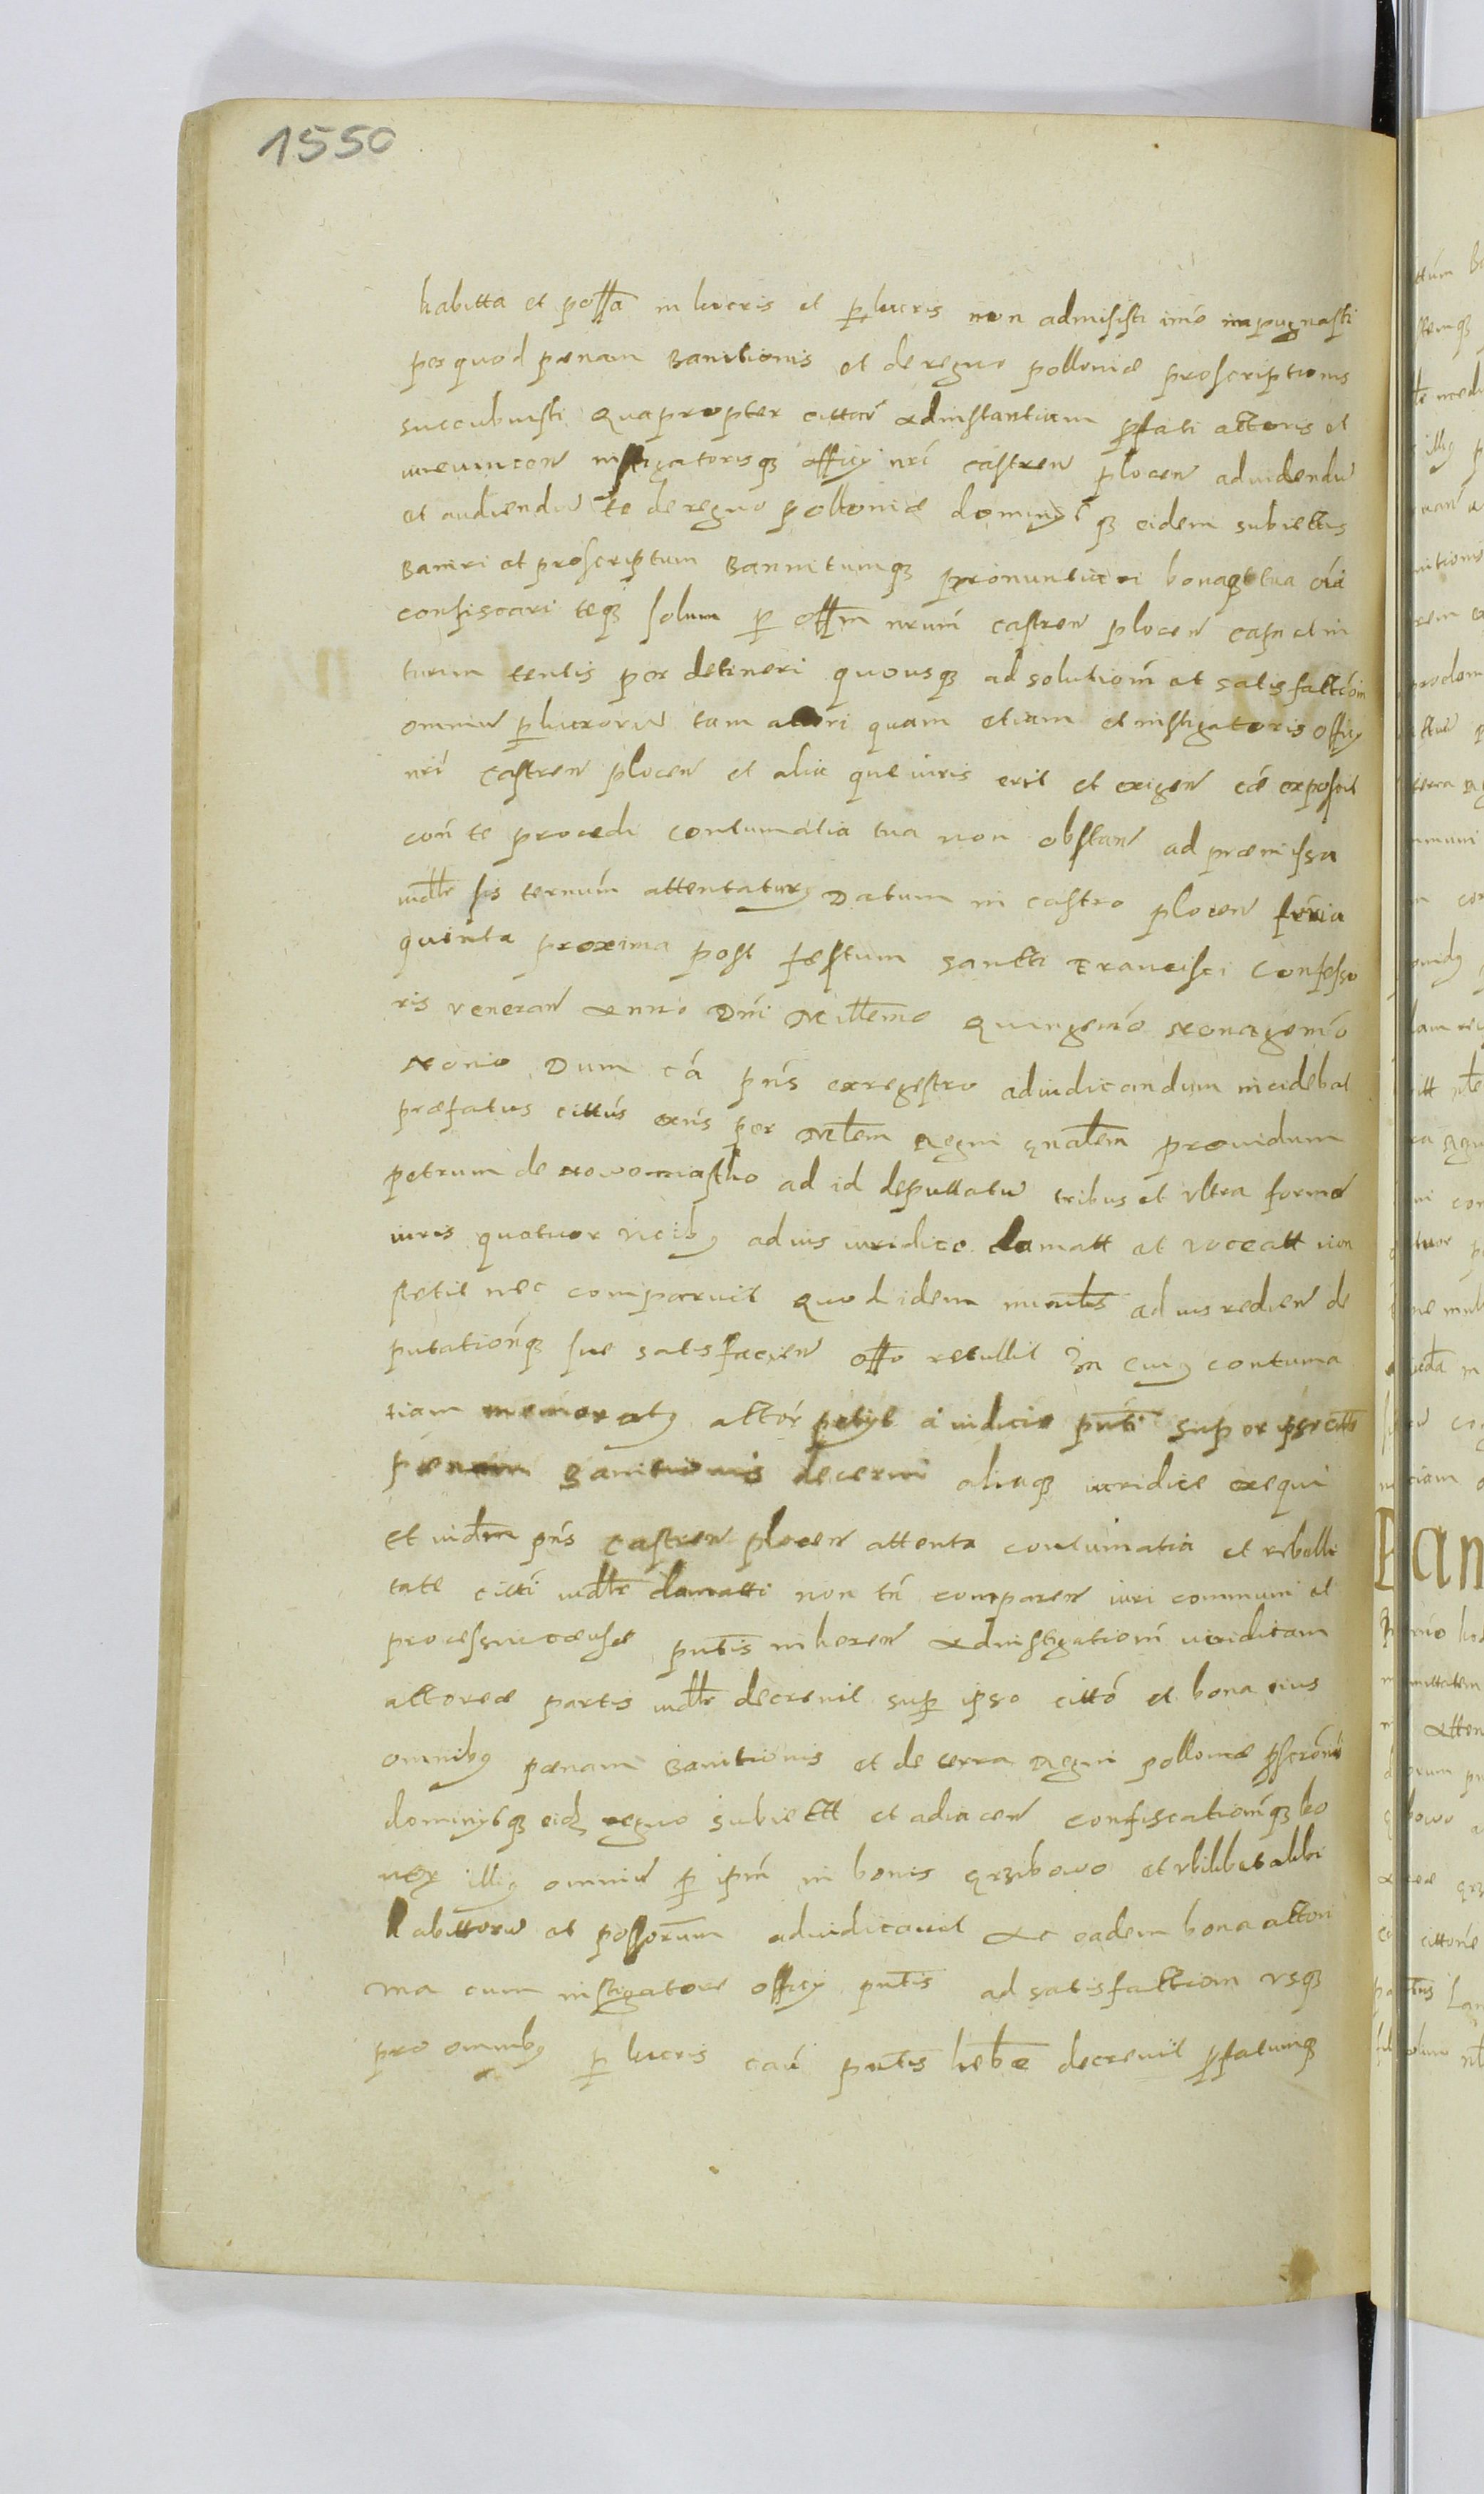 1550
habitta et possa in lucris et perlucris non admisisti imo impugnasti
per quod pœnam Banitionis et de regno polloniæ proscriptionis
succubuisti Quapropter cittatr ad instantiam præfati actoris et
iureuincen instigatorisq officy nri castren plocen ad uidendu
et audiendu te de regno polloniæ dominys q eidem subiectis
Baniri et proscriptum Bannitumq pronuntiari bonaq tua oia
confiscari teq solum per offm nrum castren plocen capi et in
turrim tentis per detineri quousq ad solutionem et satisfactioem
omniu perlucroru tam actori quam etiam et instigatoris officy
nri castren plocen et alia que iuris erit et exigen cæ exposcit
con te procedi contumatia tua non obstan ad præmissa
iudlr sis terminum attentaturus Datum in castro plocen feria
quinta proxima post festum Sancti Francisci Confesso
ris veneran Anno Dni Millemo Quingemo Nonagemo
Nono Dum ca pns ex regestro adiudicandum incidebat
præfatus cittus exns per Mlem Regni gnalem prouidum
petrum de Nowomiastho ad id deputtatu tribus et vltra forma
iuris quatuor vicibus ad ius iuridice clamatt et voccatt non
stetit nec comparuit Quod idem minlis ad ius redien de
putationq sue satisfacien offo retullit In cuius contuma
tiam memoratus actor petyt a iudicio pnti super ipso citto
pœnam Banitionis decerni aliaq iuridice exequi
Et iudm pns Castren plocen attenta contumatia et rebelli
tate citti iudlr clamatti non tn comparen iuri communi et
processui causæ pntis inheren Ad instigationem iuridicam
actoreæ partis iudlr decreuit super ipso citto et bona eius
omnibus pœnam Banitionis et de terra Regni polloniæ pscronis
dominysq eidem regno subiectt et adiacen confiscationemq bo
norum illius omniu per ipm in bonis Grzibowo et vbilibet alibi
habittoru et possorum adiudicauit Ac eadem bona actori
ma cum instigatore officy pntis ad satisfactioem vsq
pro omnibus perlucris cau pntis hebre decreuit præfatumq